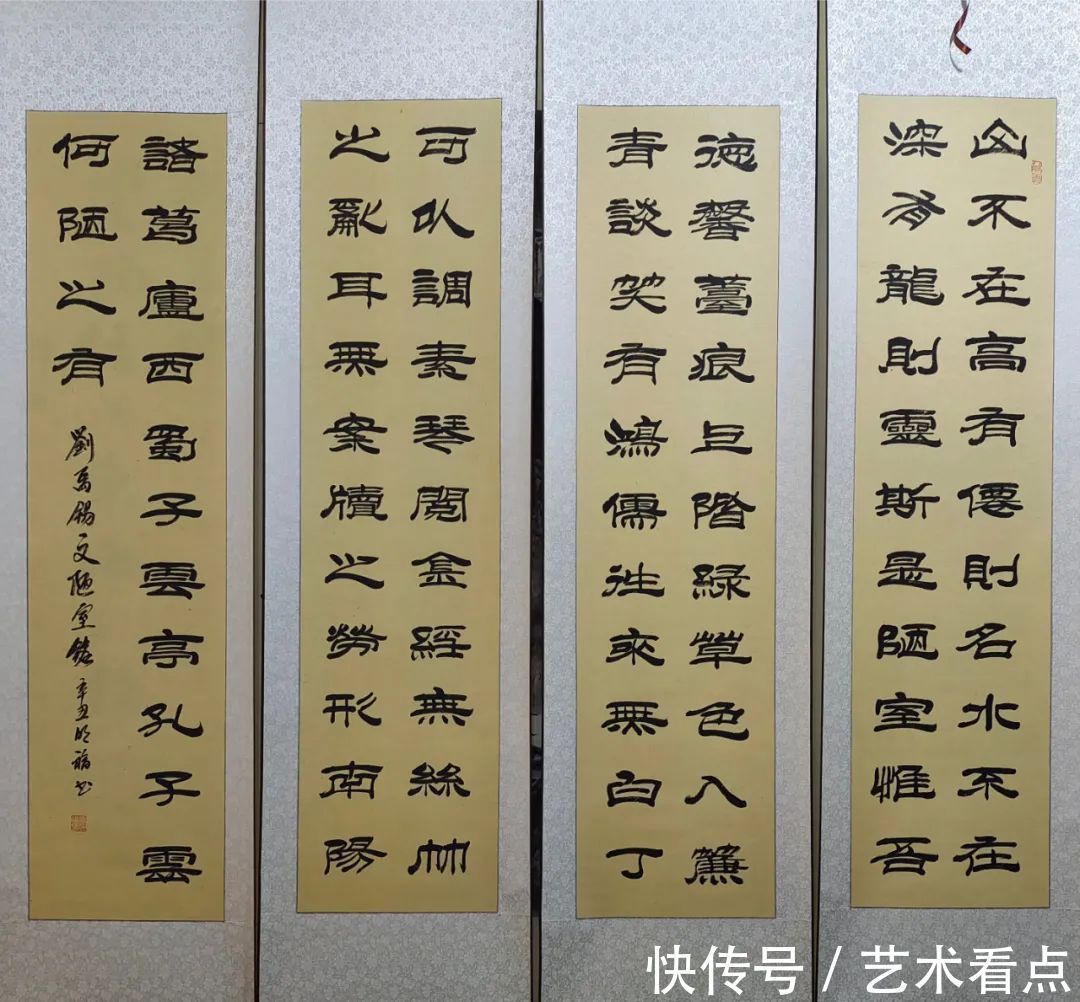 山不在高有僊則名水不在
深有龍則靈斯是陋室惟吾
德馨薹痕上階緑草色入簾
青談笑有鴻儒往來無白丁
可以調素琴閱金經無絲竹
之亂耳無案牘之勞形南陽
諸葛廬西蜀子雲亭孔子雲
何陋之有
劉禹錫文陋室銘辛丑明福书
快传号/艺术看点